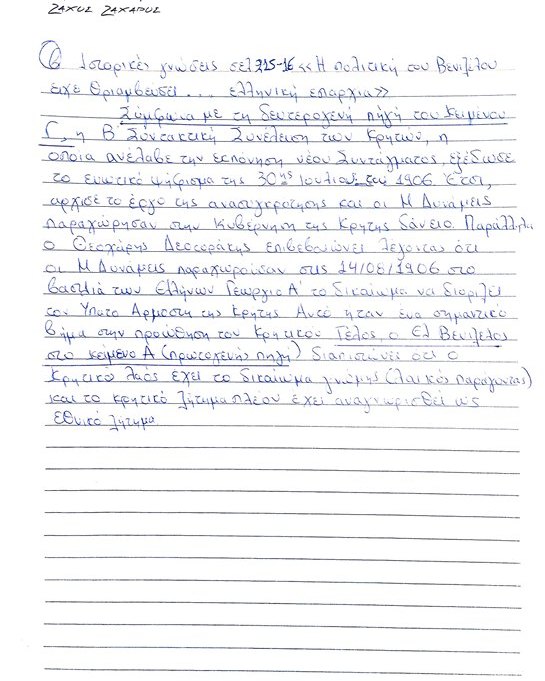 ΖΑΧΟΣ ΖΑΧΑΡΟΣ
β Ιστορικές γνώσεις σελ 215-16 << Η πολιτική του Βενιζέλου
είχε θριαμβεύσει ... ελληνική επαρχία >>
Σύμφωνα με τη δευτερογενή πηγή του κειμένου
Γ, η Β' Συντακτική Συνέλευση των Κρητών, η
οποία ανέλαβε την εκπόνηση νέου Συντάγματος, εξέδωσε
το ενωτικό ψήφισμα της 30ης Ιουλίου του 1906. Έτσι,
αρχισε το έργο της ανασυγκρότησης και οι Μ Δυνάμεις
παραχώρησαν στην Κυβέρνηση της Κρήτης δάνειο. Παράλληλα
ο Θεοχάρης Δετοράκης επιβεβαιώνει λέγοντας ότι
οι Μ Δυνάμεις παραχωρούσαν στις 14/08/1906 στο
βασιλιά των Ελλήνων Γεώργιο Α' το δικαίωμα να διορίζει
τον Υπατο Αρμοστη της Κρητης Αυτό ηταν ένα σημαντικό
βήμα στην προώθηση του Κρητικού Τέλος, ο Ελ Βενιζέλος
στο κείμενο Α (πρωτογενής πηγή) διαπιστώνει ότι ο
Κρητικό λαός έχει το δικαίωμα γνώμης (λαικός παράγοντας)
και το κρητικό ζήτημα πλέον έχει αναγνωρισθεί ως
εθνικό ζήτημα